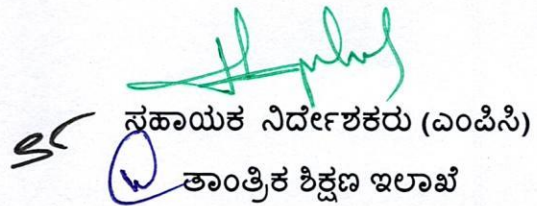 ಸಹಾಯಕ ನಿರ್ದೇಶಕರು (ಎಂಪಿಸಿ)
ತಾಂತ್ರಿಕ ಶಿಕ್ಷಣ ಇಲಾಖೆ